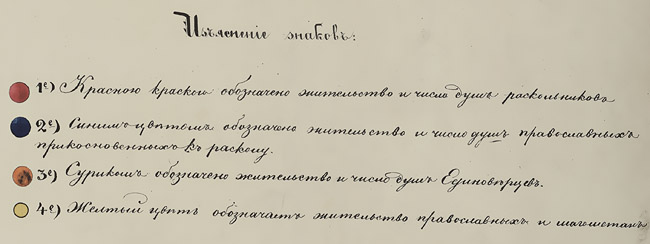 Изъясненіе знаковъ:
1е) Красною краскою обозначено жительство и число душъ раскольниковъ
2е) Синимъ цвѣтомъ обозначено жительство и число душъ православныхъ
прикосновенныхъ къ расколу.
3е) Сурикомъ обозначено жительство и число душъ Единовѣрцевъ.
4е) Желтый цвѣтъ обозначаетъ жительство православныхъ и магометанъ